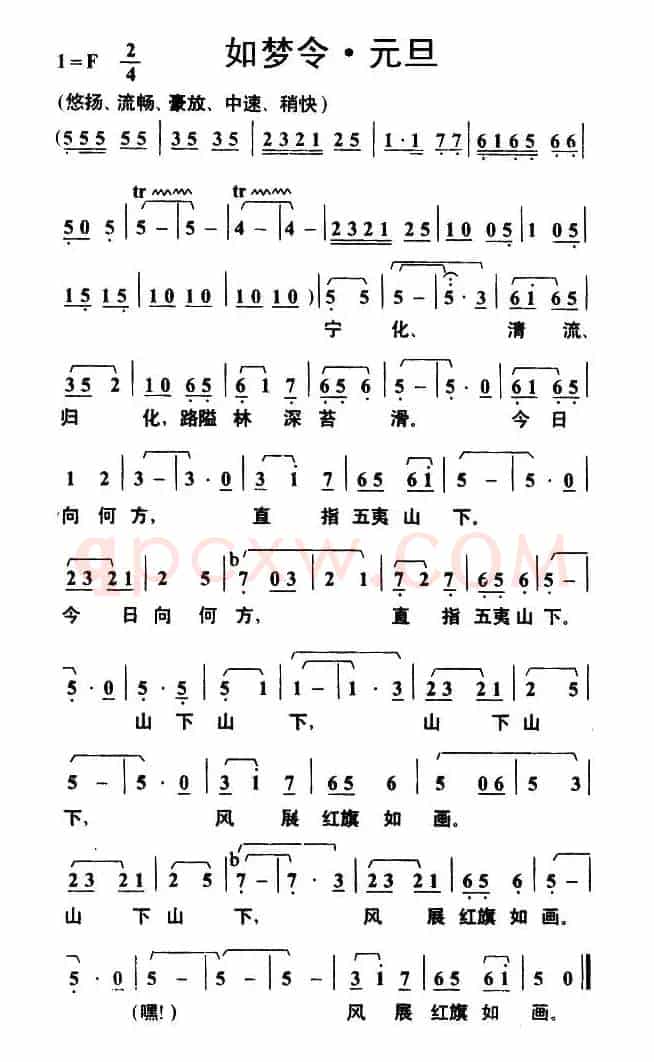 如梦令·元旦
1=F 2/4
(悠扬、流畅、豪放、中速、稍快)
(555 55|35 35|2321 25|1·1 77|6165 66|
tr tr
505|5-|5-|4-|4-|2321 25|10 05|1 05|
15 15|10 10|10 10)|5 5|5-|5·3|61 65|
宁 化、 清 流、
35 2|10 65|6 1 7|65 6|5-|5·0|6 5 65|
归 化,路隘 林 深 苔 滑。 今 日
1 2|3-|3·0|3 1 7|65 61|5-|5·0|
向 何 方, 直 指 五夷 山 下。
qpcxw.COM
23 21|2 5|b7 03|2 1|7 2 7|65 6|5-|
今 日 向 何 方, 直 指 五夷 山 下。
5·0|5·5|5 1|1-|1·3|23 21|2 5|
山 下 山 下, 山 下 山
5-|5·0|3 1 7|65 6|5 06|5 3|
下, 风 展 红旗 如 画。
23 21|2 5|b7-|7·3|23 2|65 5|5-|
山 下 山 下, 风 展 红旗 如 画。
5·0|5-|5-|3 1 7|65 61|5-‖
(嘿!) 风 展 红旗 如 画。